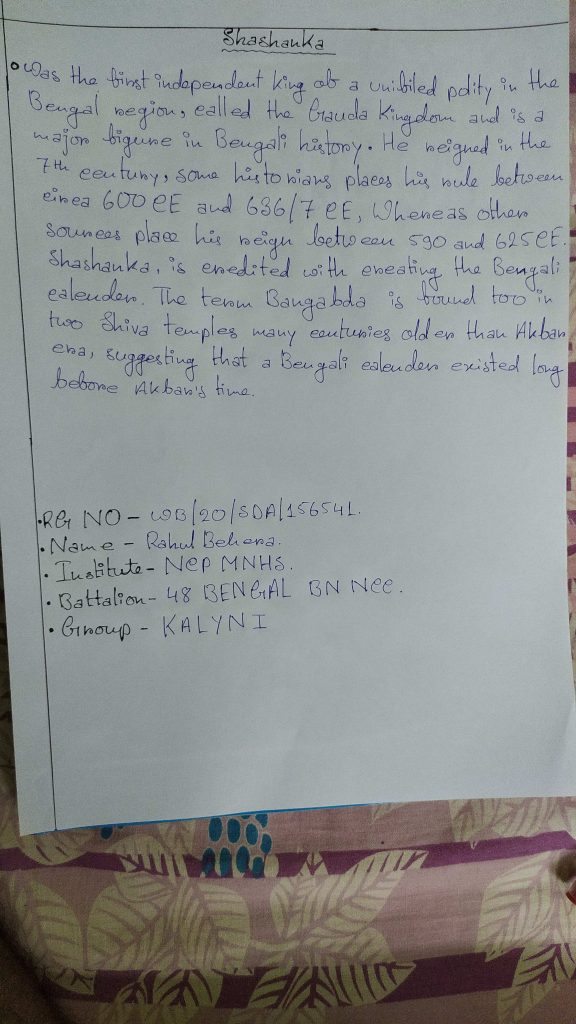 Shashanka
• Was the first independent king of a unifiled polity in the
Bengal region, called the Gauda Kingdom and is a
major figure in Bengali history. He reigned in the
7th century, some historians places his rule between
circa 600 CE and 636/7 CE, Whereas other
sources place his reign between 590 and 625 CE.
Shashanka, is credited with creating the Bengali
calender. The term Bangabda is found too in
two Shiva temples many centuries older than Akbar
era, suggesting that a Bengali calender existed long
before Akbar's time.
• RG NO - WB/20/SDA/156541.
• Name - Rahul Behera.
• Institute - NCP MNHS.
• Battalion - 48 BENGAL BN NCC.
• Group - KALYNI